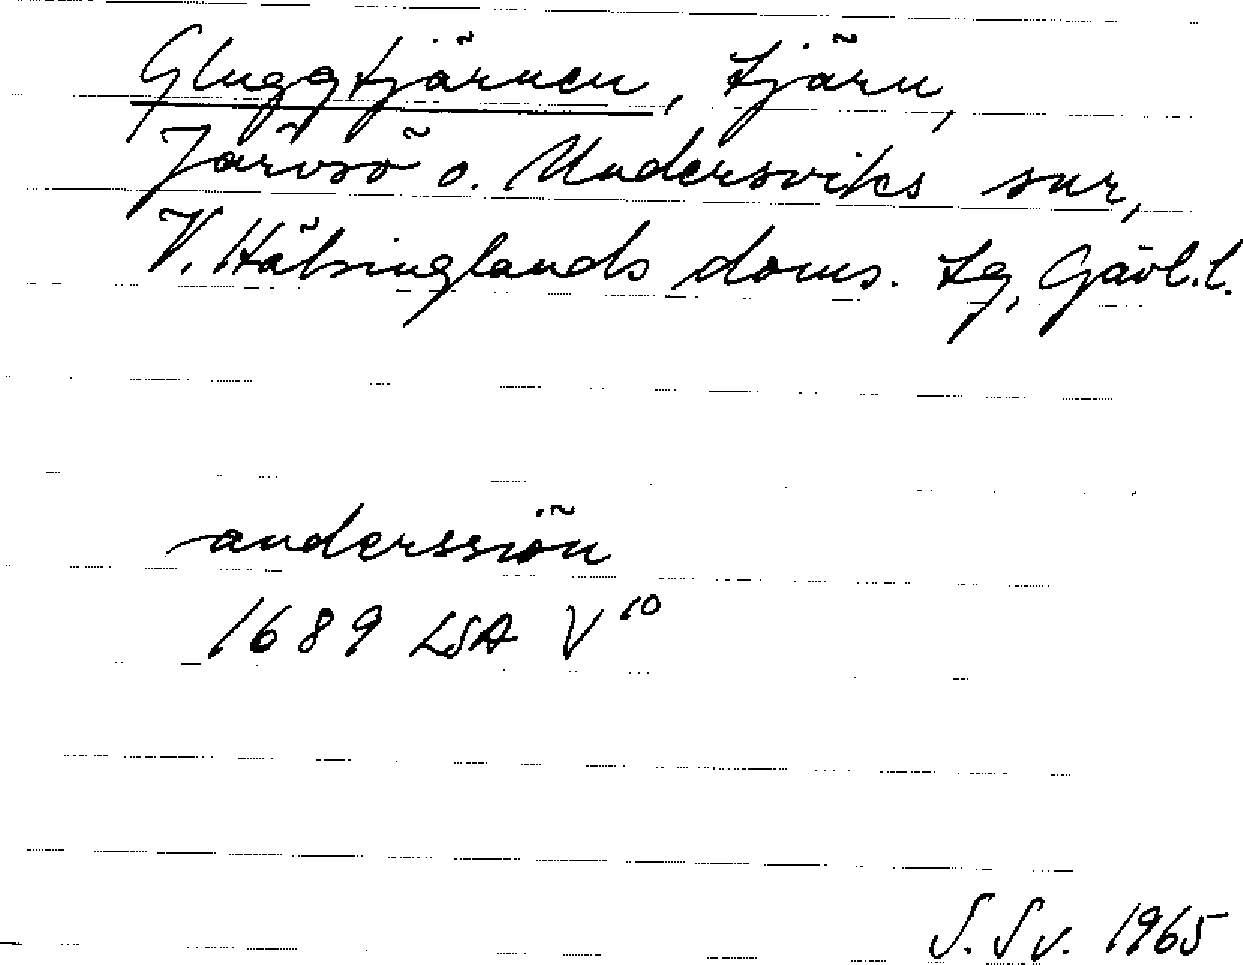 Gluggtjärnen, tjärn,
Järvsö o. Undersviks snr,
V. Hälsinglands doms. tg, Gävl.l.
anderssiön
1689 LSA V10
S. Sv. 1965